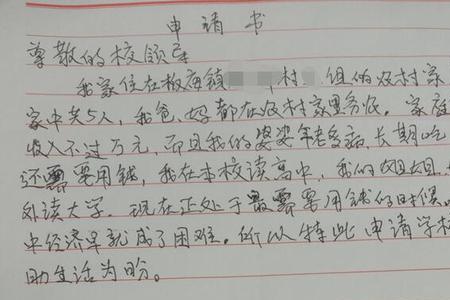 申请书
尊敬的校领导
我家住在板庙镇 村 组的农村家
家中共5人，我爸、妈都在农村家里务农。家庭
收入不过万元，而且我的婆婆年老多病，长期吃
还需要用钱，我在本校读高中，我的姐姐
外读大学。现在正处于最需要用钱的时候
中经济早就成了困难。所以特此申请学校
助生活为盼。